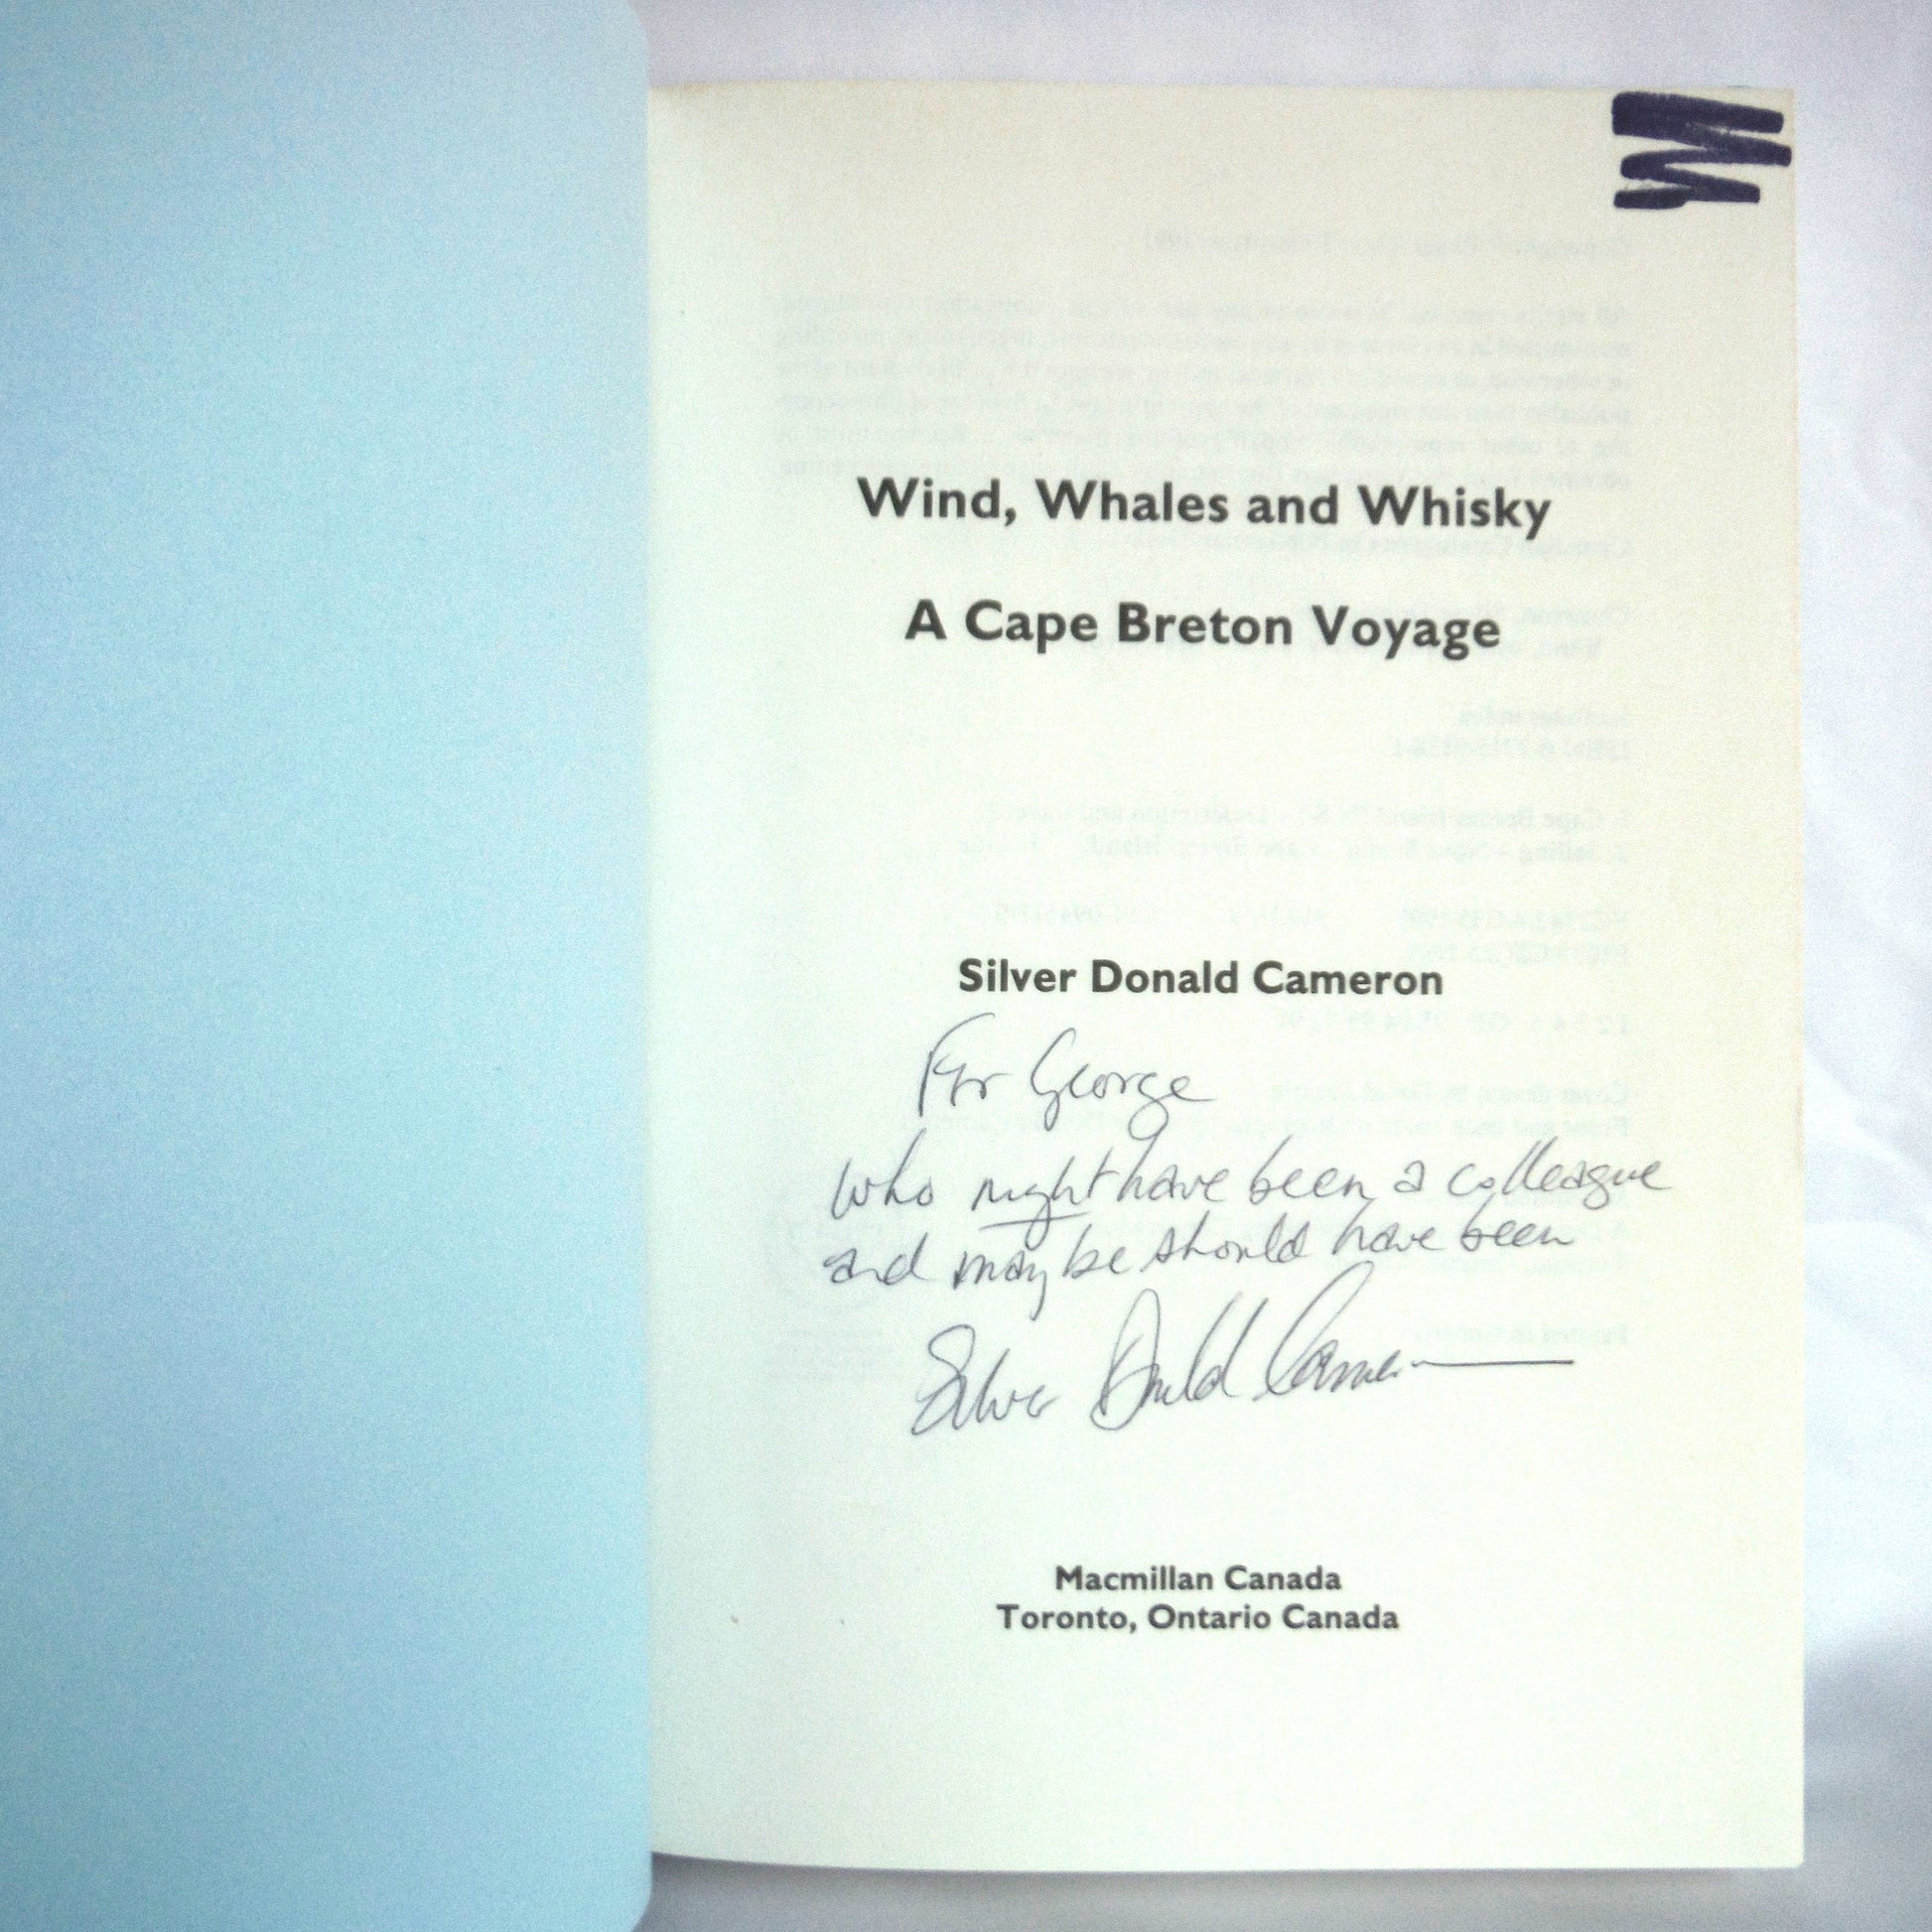 Wind, Whales and Whisky
A Cape Breton Voyage
Silver Donald Cameron
For George
who might have been a colleague
and maybe should have been
Silver Donald Cameron
Macmillan Canada
Toronto, Ontario Canada